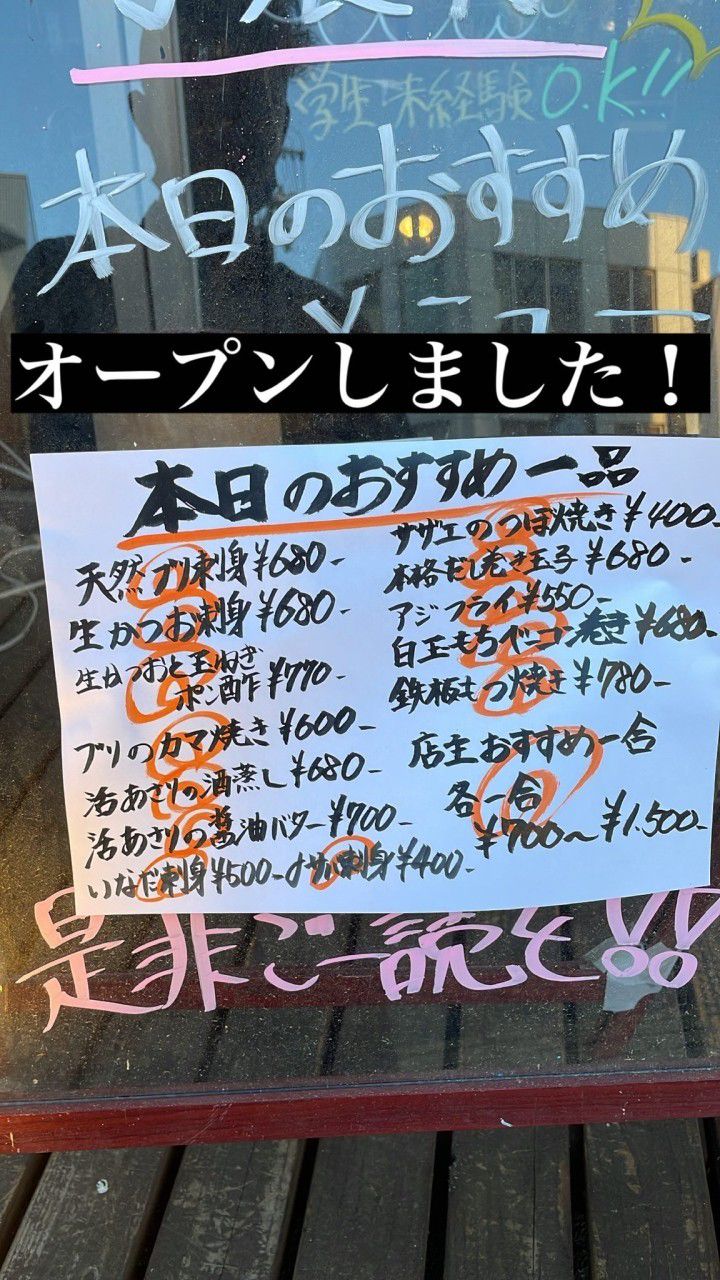 学生・未経験O.K!!
本日のおすすめ
メニュー
オープンしました！
本日のおすすめ一品
天然ブリ刺身¥680-
生かつお刺身¥680-
生かつおと玉ねぎ
ポン酢¥770-
ブリのカマ焼き¥600-
活あさりの酒蒸し¥680-
活あさりの醤油バター¥700-
いなだ刺身¥500-〆サバ刺身¥400-
サザエのつぼ焼き¥400-
本格だし巻き玉子¥680-
アジフライ¥550-
白玉もちベーコン巻き¥680-
鉄板もつ焼き¥780-
店主おすすめ一合
各一合
¥700〜¥1.500-
是非ご一読を!!